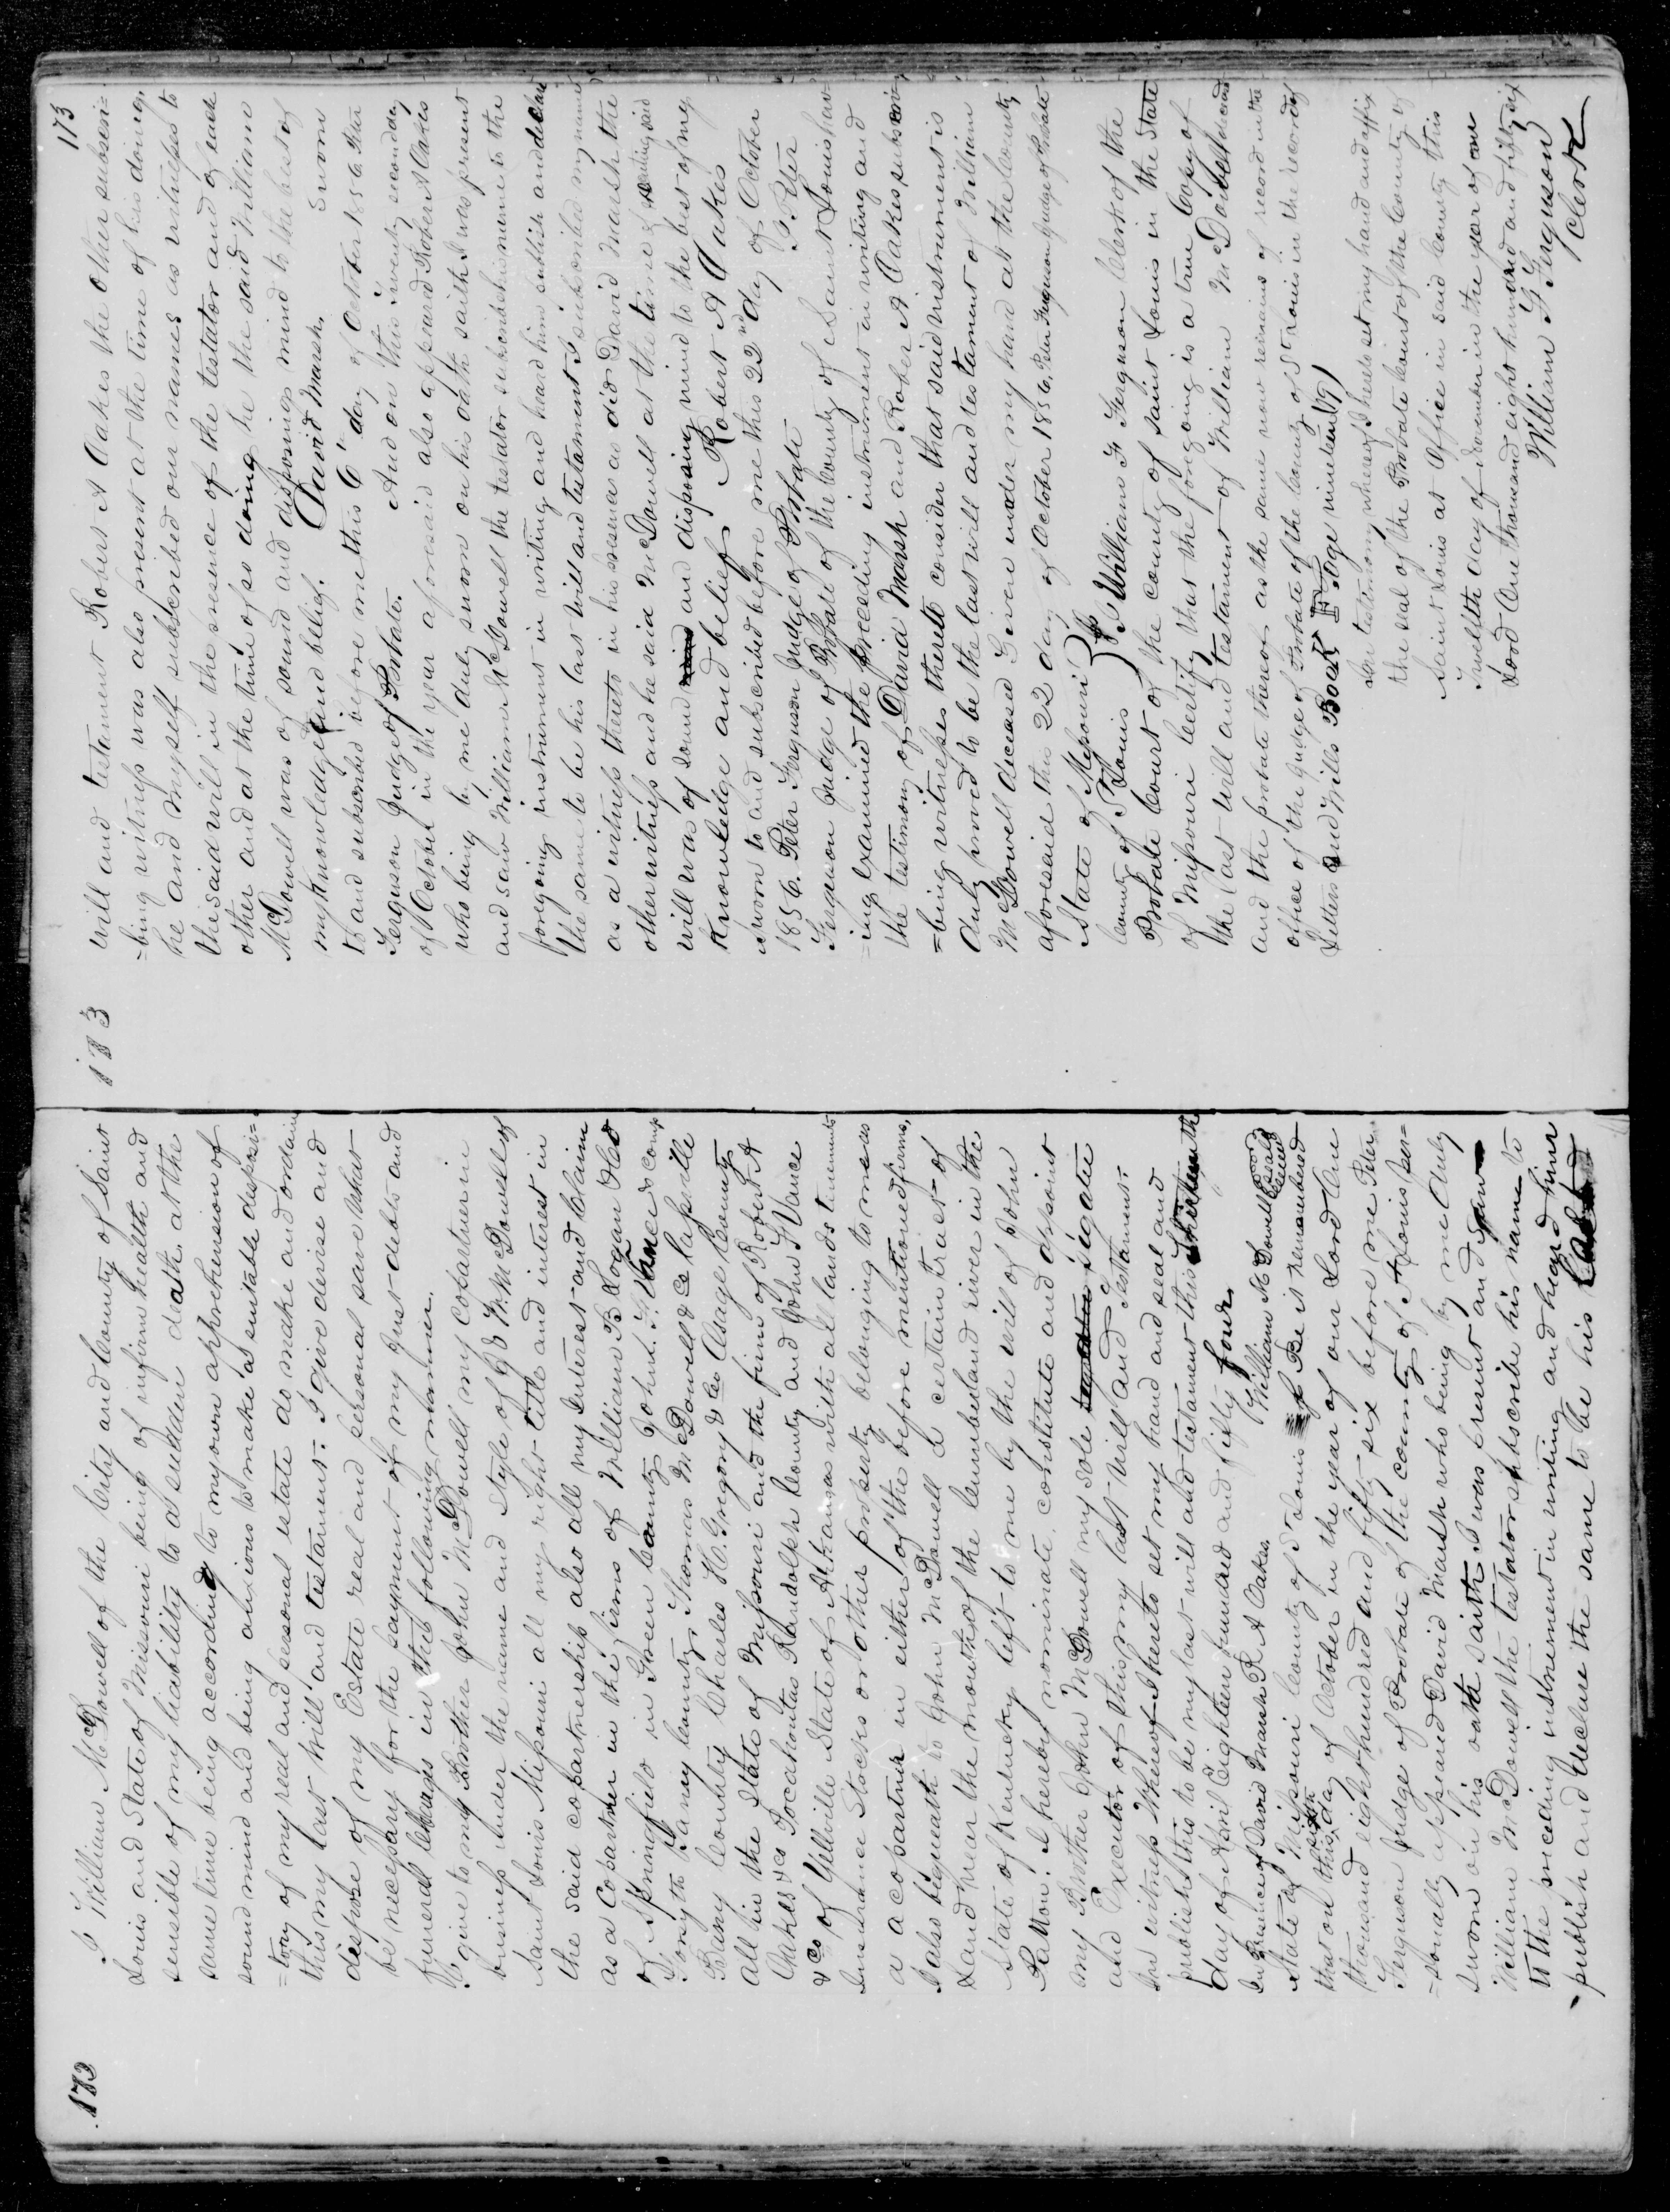 172
I William McDowell of the City and County of Saint
Louis and State of Missouri being of infirm health and
sensible of my liability to a sudden death at the
same time being according to my own apprehension of
sound mind and being anxious to make a suitable disposi=
=tion of my real and personal estate do make and ordain
this my last Will and testament. I give devise and
dispose of my Estate real and personal save what
be necessary for the payment of my Just debts and
funeral in the following manner.
I give to my Brother John McDowell my copartner in
business under the name and style of J & W. McDowell of
Saint Louis Missouri all my right title and interest in
the said copartnership also all my interest and Claim
as a Copartner in the firms of William B Logan & Co
of Springfield in Green County John. F. Vance & comp
Forsyth Taney County, Thomas McDowell & Co
Barry County Charles H. Gregory & Co Osage County
all in the State of Missouri and the firm of Robert A
Oakes & Co Pocahontas Randolph County and John F Vance
& Co of Yellville State of Arkansas with all lands tenements
Insurance Stocks or other property belonging to me as
a copartner in either of the before mentioned firms,
I also bequeath to John McDowell a certain tract of
Land near the mouth of the Cumberland river in the
State of Kentucky left to me by the will of John
Patton. I hereby nominate constitute and appoint
my Brother John McDowell my sole legatee
and Executor of this my last Will and Testament.
In witness Whereof I hereto set my hand and seal and
publish this to be my last will and testament this thirteenth
day of April Eighteen hundred and fifty four.
In Presence of David Marsh R A Oakes William McDowell Seal
State of Missouri County of St Louis Be it remembered
that on this sixth day of October in the year of our Lord One
thousand eight hundred and fifty six before me Peter
Ferguson Judge of Probate of the county of St Louis per=
=sonally appeared David Marsh who being by me duly
sworn on his oath saith I was present and saw
William McDowell the testator subscribe his name to
to the preceding instrument in writing and heard him
publish and declare the same to be his last
173
173
will and testament Robert A Oakes the other subscri=
=bing witness was also present at the time of his doing,
he and myself subscribed our names as witnesses to
the said will in the presence of the testator and of each
other and at the time of so doing he the said William
McDowell was of sound and disposing mind to the best of
my knowledge and belief. David Marsh. Sworn
to and subscribed before me this 6th day of October 1856 Peter
Ferguson Judge of Probate. And on this twenty second day
of October in the year aforesaid also appeared Robert A Oakes
who being by me duly sworn on his oath saith I was present
and saw William McDowell the testator subscribe his name to the
foregoing instrument in writing and heard him publish and declare
the same to be his last will and testament I subscribed my name
as a witness thereto in his presence as did David Marsh the
other witness and he said McDowell at the time of executing said
will was of sound and disposing mind to the best of my
knowledge and belief Robert A Oakes
sworn to and subscribed before me this 22nd day of October
1856. Peter Ferguson Judge of Probate I Peter
Ferguson Judge of Probate of the County of Saint Louis hav=
=ing examined the preceding instrument in writing and
the testimony of David Marsh and Robert A Oakes subscri=
=bing witnesses thereto consider that said instrument is
duly proved to be the last will and testament of William
McDowell deceased Given under my hand at the County
aforesaid this 22 day of October 1856. Peter Ferguson Judge of Probate
State of Missouri }
County of St Louis } I William F Ferguson Clerk of the
Probate Court of the county of saint Louis in the State
of Missouri Certify that the foregoing is a true Copy of
the last Will and testament of William McDowell deceased
and the probate thereof as the same now remains of record in the
office of the Judge of Probate of the County of St Louis in the record of
Letters and Wills Book F. Page nineteen (19)
In testimony whereof I hereto set my hand and affix
the seal of the Probate Court of the County of
Saint Louis at Office in said County this
Twelfth day of December in the year of our
Lord One thousand eight hundred and fifty six
William F. Ferguson
Clerk